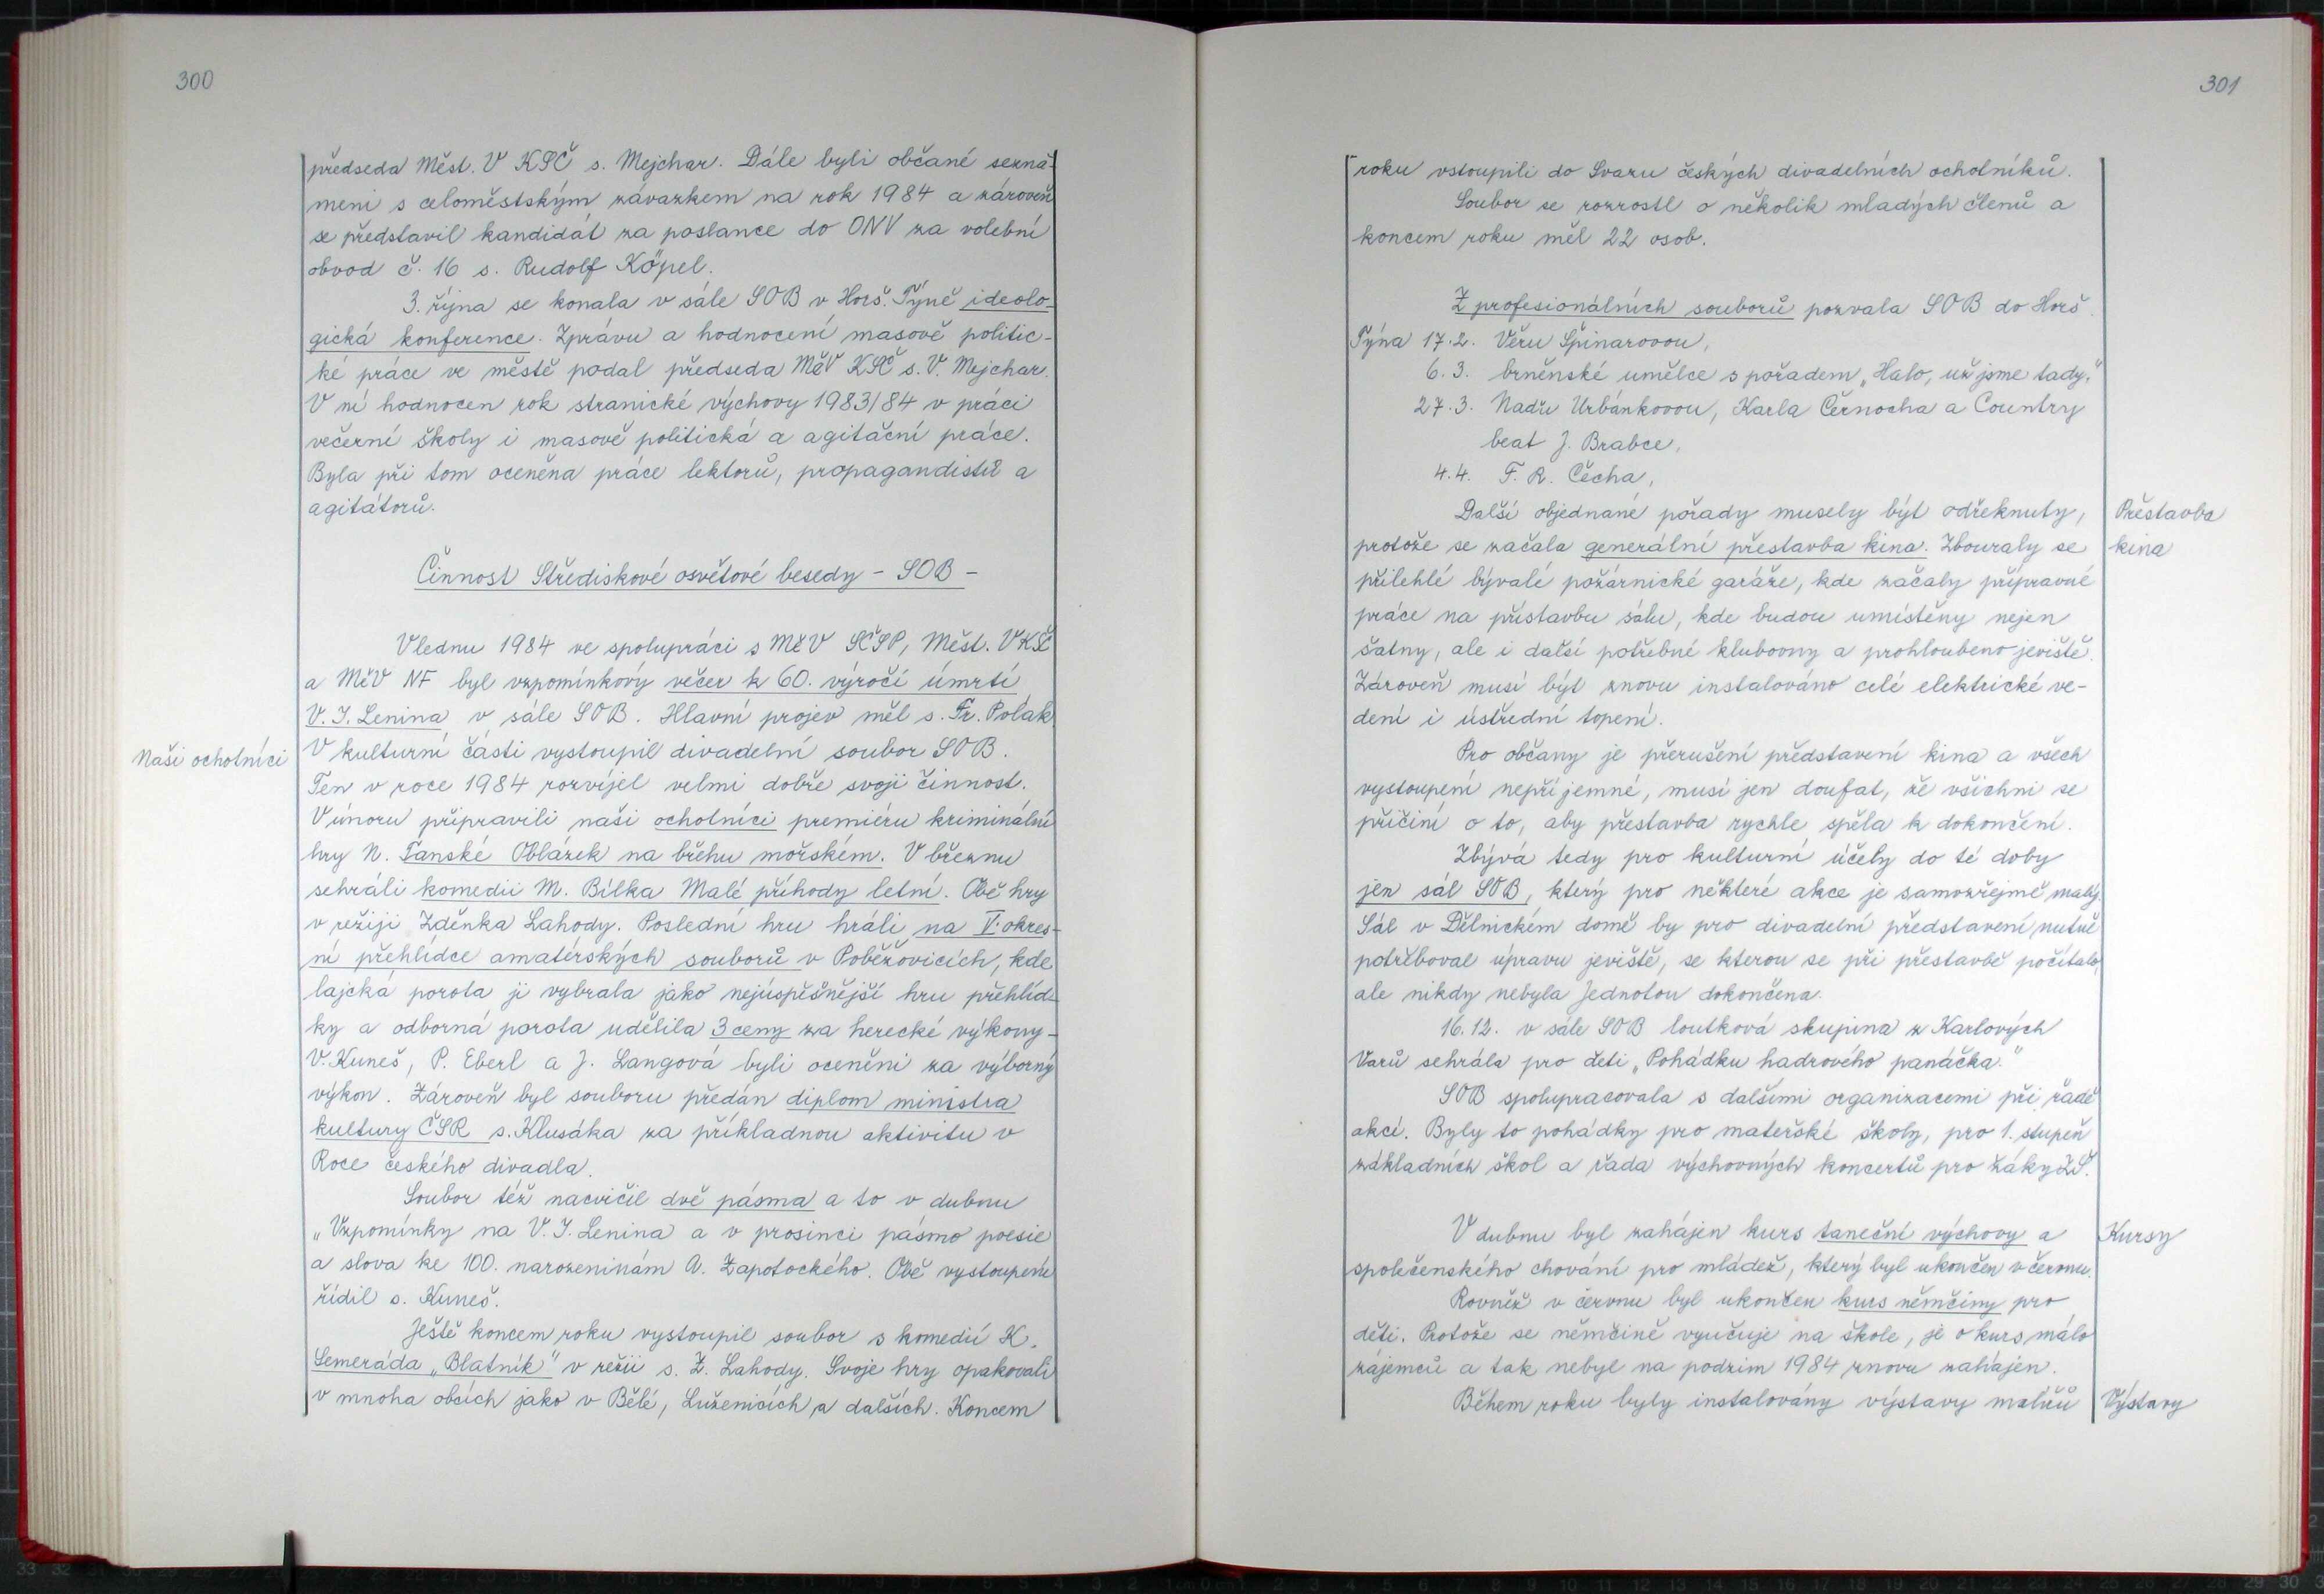 300
předseda Měst. V KSČ s. Mejchar. Dále byli občané sezná-
meni s celoměstským závazkem na rok 1984 a zároveň
se představil kandidát za poslance do ONV za volební
obvod č. 16 s. Rudolf Köpel.
3. října se konala v sále SOB v Horš. Týně ideolo-
gická konference. Zprávu a hodnocení masově politic-
ké práce ve městě podal předseda MěV KSČ s. V. Mejchar.
V ní hodnocen rok stranické výchovy 1983/84 v práci
večerní školy i masově politická a agitační práce.
Byla při tom oceněna práce lektorů, propagandistů a
agitátorů.
Činnost Střediskové osvětové besedy - SOB -
V lednu 1984 ve spolupráci s MěV SČSP, Měst. V KSČ
a MěV NF byl vzpomínkový večer k 60. výročí úmrtí
V. I. Lenina v sále SOB. Hlavní projev měl s. Fr. Polák.
Naši ochotníci
V kulturní části vystoupil divadelní soubor SOB.
Ten v roce 1984 rozvíjel velmi dobře svoji činnost.
V únoru připravili naši ochotníci premiéru kriminální
hry N. Tanské Oblázek na břehu mořském. V březnu
sehráli komedii M. Bílka Malé příhody letní. Obě hry
v režiji Zděnka Lahody. Poslední hru hráli na V. okres-
ní přehlídce amatérských souborů v Poběžovicích, kde
lajcká porota ji vybrala jako nejúspěšnější hru přehlíd-
ky a odborná porota udělila 3 ceny za herecké výkony -
V. Kuneš, P. Eberl a J. Langová byli oceněni za výborný
výkon. Zároveň byl souboru předán diplom ministra
kultury ČSR s. Klusáka za příkladnou aktivitu v
Roce českého divadla.
Soubor též nacvičil dvě pásma a to v dubnu
„Vzpomínky na V. I. Lenina a v prosinci pásmo poesie
a slova ke 100. narozeninám A. Zápotockého. Obě vystoupení
řídil s. Kuneš.
Ještě koncem roku vystoupil soubor s komedií K.
Semeráda „Blatník" v režii s. Z. Lahody. Svoje hry opakovali
v mnoha obcích jako v Bělé, Luženicích a dalších. Koncem
301
roku vstoupili do Svazu českých divadelních ochotníků.
Soubor se rozrostl o několik mladých členů a
koncem roku měl 22 osob.
Z profesionálních souborů pozvala SOB do Horš.
Týna 17.2. Věru Špinarovou,
6.3. brněnské umělce s pořadem „Halo, už jsme tady."
27.3. Naďu Urbánkovou, Karla Černocha a Country
beat J. Brabce,
4.4. F. R. Čecha,
Další objednané pořady musely být odřeknuty,
Přestavba
protože se začala generální přestavba kina. Zbouraly se
kina
přilehlé bývalé požárnické garáže, kde začaly přípravné
práce na přístavbu sálu, kde budou umístěny nejen
šatny, ale i další potřebné klubovny a prohloubeno jeviště.
Zároveň musí být znovu instalováno celé elektrické ve-
dení i ústřední topení.
Pro občany je přerušení představení kina a všech
vystoupení nepříjemné, musí jen doufat, že všichni se
přičiní o to, aby přestavba rychle spěla k dokončení.
Zbývá tedy pro kulturní účely do té doby
jen sál SOB, který pro některé akce je samozřejmě malý.
Sál v Dělnickém domě by pro divadelní představení nutně
potřeboval úpravu jeviště, se kterou se při přestavbě počítalo,
ale nikdy nebyla Jednotou dokončena.
16.12. v sále SOB loutková skupina z Karlových
Varů sehrála pro děti „Pohádku hadrového panáčka."
SOB spolupracovala s dalšími organizacemi při řadě
akcí. Byly to pohádky pro mateřské školy, pro 1. stupeň
základních škol a řada výchovných koncertů pro žáky ZŠ.
V dubnu byl zahájen kurs taneční výchovy a
Kursy
společenského chování pro mládež, který byl ukončen v červnu.
Rovněž v červnu byl ukončen kurs němčiny pro
děti. Protože se němčině vyučuje na škole, je o kurs málo
zájemců a tak nebyl na podzim 1984 znovu zahájen.
Během roku byly instalovány výstavy malířů
Výstavy